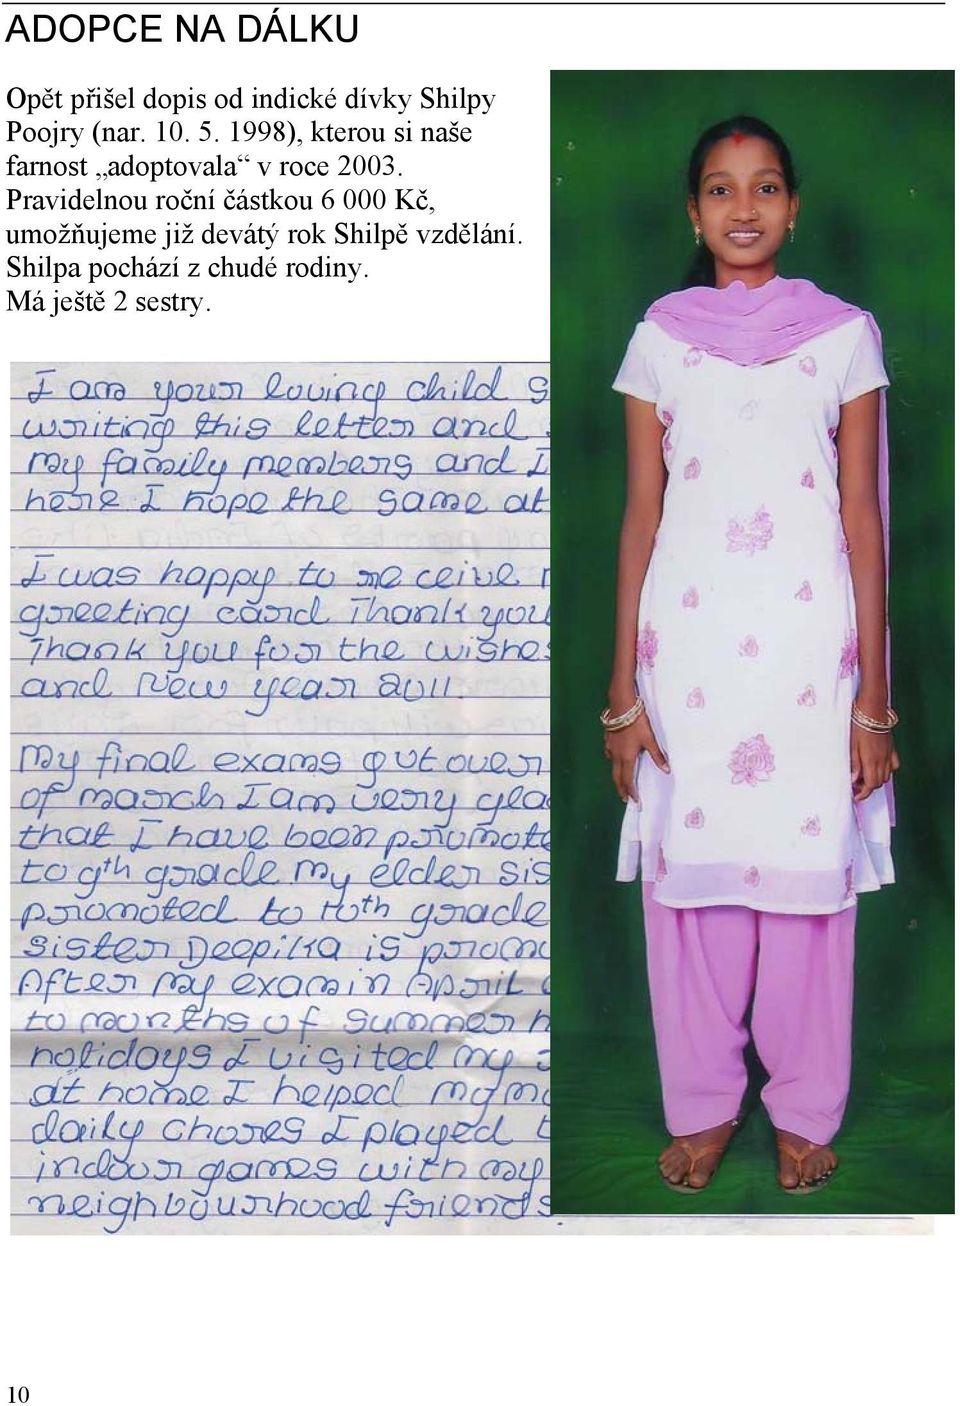 ADOPCE NA DÁLKU
Opět přišel dopis od indické dívky Shilpy
Poojry (nar. 10. 5. 1998), kterou si naše
farnost „adoptovala“ v roce 2003.
Pravidelnou roční částkou 6 000 Kč,
umožňujeme již devátý rok Shilpě vzdělání.
Shilpa pochází z chudé rodiny.
Má ještě 2 sestry.
I am your loving child S
writing this letter and
my family members and I
here I hope the same at
I was happy to receive
greeting card Thank you
Thank you for the wishes
and New year 2011.
My final exams gut over
of march I am very gla
that I have been promote
to 9th grade. My elder sis
promoted to 10th grade
sister Deepika is promo
After my exam in April
to months of summer h
holidays I visited my
at home I helped my m
daily chores I played
indoor games with my
neighbourhood friends
10